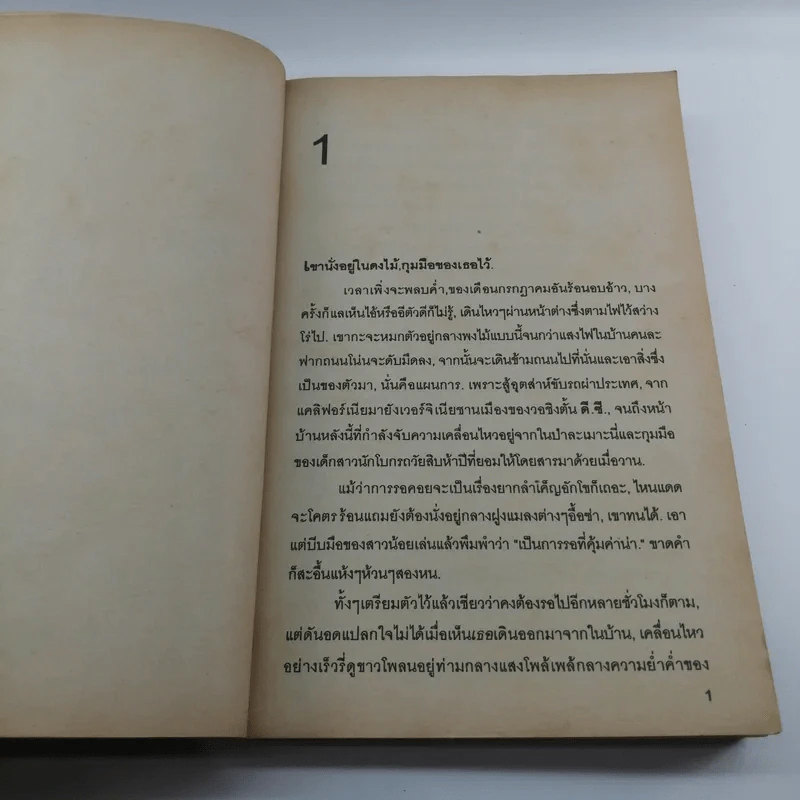 1
เขานั่งอยู่ในดงไม้,กุมมือของเธอไว้.
เวลาเพิ่งจะพลบค่ำ,ของเดือนกรกฎาคมอันร้อนอบอ้าว, บาง
ครั้งก็แลเห็นไอ้หรืออีตัวดีก็ไม่รู้, เดินไหวๆผ่านหน้าต่างซึ่งตามไฟไว้สว่าง
โร่ไป. เขากะจะหมกตัวอยู่กลางพงไม้แบบนี้จนกว่าแสงไฟในบ้านคนละ
ฟากถนนโน่นจะดับมืดลง, จากนั้นจะเดินข้ามถนนไปที่นั่นและเอาสิ่งซึ่ง
เป็นของตัวมา, นั่นคือแผนการ. เพราะสู้อุตส่าห์ขับรถผ่าประเทศ, จาก
แคลิฟอร์เนียมายังเวอร์จิเนียชานเมืองของวอชิงตั้น ดี.ซี., จนถึงหน้า
บ้านหลังนี้ที่กำลังจับความเคลื่อนไหวอยู่จากในป่าละเมาะนี่และกุมมือ
ของเด็กสาวนักโบกรถวัยสิบห้าปีที่ยอมให้โดยสารมาด้วยเมื่อวาน.
แม้ว่าการรอคอยจะเป็นเรื่องยากลำเค็ญอักโขก็เถอะ, ไหนแดด
จะโคตรร้อนแถมยังต้องนั่งอยู่กลางฝูงแมลงต่างๆอื้อซ่า, เขาทนได้. เอา
แต่บีบมือของสาวน้อยเล่นแล้วพึมพำว่า "เป็นการรอที่คุ้มค่าน่า." ขาดคำ
ก็สะอื้นแห้งๆห้วนๆสองหน.
ทั้งๆเตรียมตัวไว้แล้วเชียวว่าคงต้องรอไปอีกหลายชั่วโมงก็ตาม,
แต่ดันอดแปลกใจไม่ได้เมื่อเห็นเธอเดินออกมาจากในบ้าน, เคลื่อนไหว
อย่างเร็วรี่ดูขาวโพลนอยู่ท่ามกลางแสงโพล้เพล้กลางความย่ำค่ำของ
1